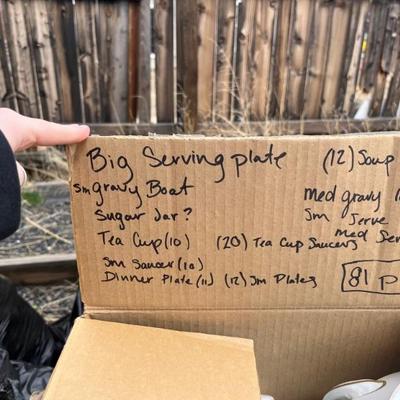 Big Serving plate (12) Soup
sm gravy Boat med gravy
Sugar Jar? Sm Serve
Tea Cup (10) (20) Tea Cup Saucers med Ser
Sm Saucer (10)
Dinner Plate (11) (12) Sm Plates 81 P